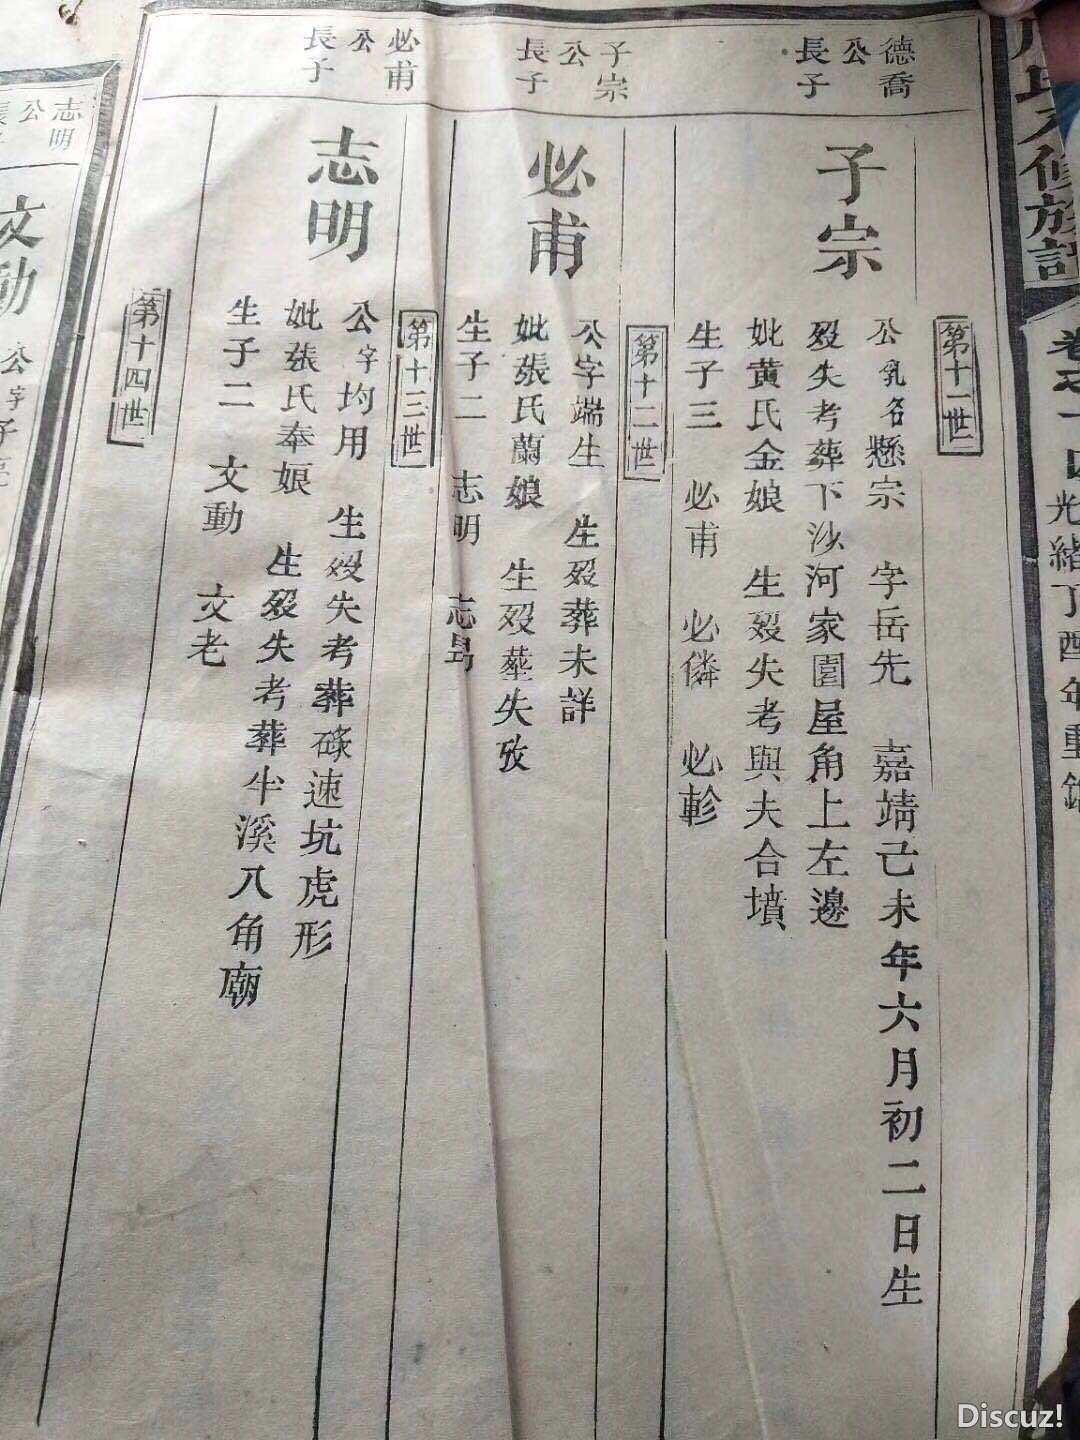 氏六修族譜
光緒丁酉年重鐫
第十一世
德喬
公
長子
子宗
公乳名懸宗 字岳先 嘉靖己未年六月初二日生
歿失考葬下沙河家園屋角上左邊
妣黃氏金娘 生歿失考與夫合墳
生子三 必甫 必憐 必軫
第十二世
子宗
公
長子
必甫
公字端生 生歿葬未詳
妣張氏蘭娘 生歿塟失攷
生子二 志明 志昺
第十三世
必甫
公
長子
志明
公字均用 生歿失考葬磜速坑虎形
妣張氏奉娘 生歿失考葬半溪八角廟
生子二 文動 文老
第十四世
志明
公
長子
文動
公字子
Discuz!